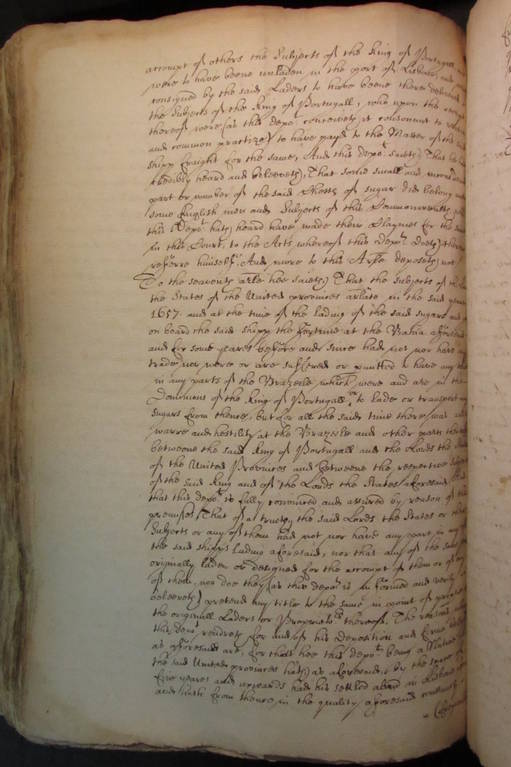 accompt of others the Subjects of the King of Portugall
were to have beene unladen in the port of Lisbone, and
consigned by the said Laders to have beene there delivered
the Subjects of the King of Portugall, who upon the
thereof were (as this depo:t conceiveth et consonant to
and common practize) to have payd to the Master of the
shipp fraight for the same, And this depo:t saieth That hee
credibly heard and beleeveth, That some small and
part or number of the said Chests of sugar did belong
some English men and Subjects of this Commonwealth
this depo:t hath heard have made their Claymes for the
in this Court, to the Acts whereof this depo:t
referre himselfe And more to this Arle deposeth not
To the seaventh arle hee saieth That the subjects of the
the States of the United provinces arlate in the said yeare
1657. and at the time of the lading of the said sugars
on board the said shipp the fortune at the Bahia
and for some yeares before and since had not nor have any
trade nor were or are suffered or permitted to have any
in any parts of the Brazeele which were and are in the
Dominions of the King of Portugall, to lade or transport any
sugars from thence, but for all the said time there was
warre and hostility at the Brazeele and other parts
betweene the said King of Portugall and the Lords the
of the United Provinces and betweene the respective
of the said King and of the Lords the States aforesaid,
that this depo:t is fully convinced and assured by reason of the
premises That of a truth, the said Lords the States or their
Subjects or any of them had not nor have any part in
the said shipps lading aforesaid, nor that any of the same
originally laden or designed for the accompt of them or of any
of them, nor doe they (as this depo:t is informed and verily
beleeveth) pretend any title to the same in point of
the originall Laders or Proprietors thereof. The reason
this depo:t rendreth for and of his deposition and
as aforesaid are, for that hee this depo:t being a
the said United provinces hath as aforesaid
five yeares and upwards had his setled abode in Lisbone
and hath from thence in the quality aforesaid